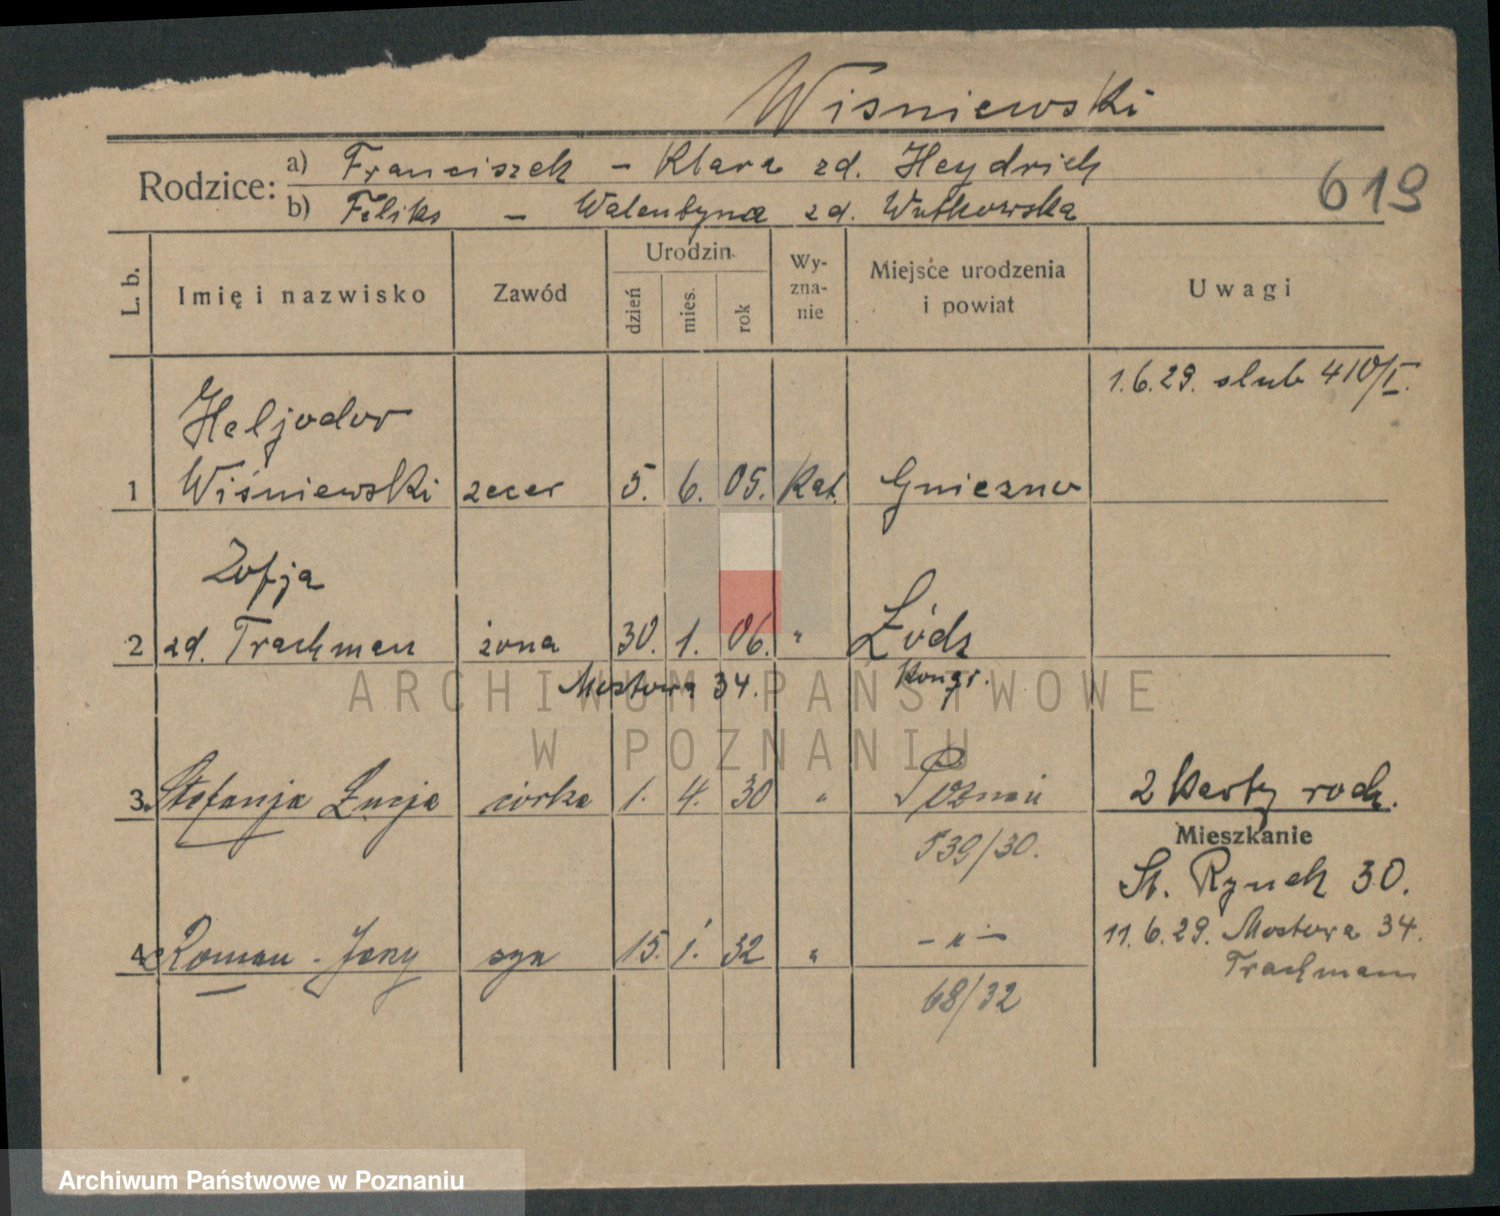 Wisniewski
Rodzice: a) Franciszek – Klara zd. Heydrich
b) Feliks – Walentyna zd. Wutkowska
619
L. b. Imię i nazwisko Zawód Urodzin dzień mies. rok Wyznanie Miejsce urodzenia i powiat Uwagi
1.6.29. slub 410/I.
Heljodor
1 Wiśniewski zecer 5. 6. 05. Kat. Gniezno
Zofja
2 zd. Trachman żona 30. 1. 06. " Łódz
Mostowa 34. Kongr.
3. Stefanja Łucja córka 1. 4. 30 " Poznań 2 karty rodz.
539/30. Mieszkanie
St. Rynek 30.
11.6.29. Mostowa 34.
4. Roman - Jerzy syn 15. 1. 32 " – " –
Trachmann
68/32
ARCHIWUM PAŃSTWOWE
W POZNANIU
Archiwum Państwowe w Poznaniu